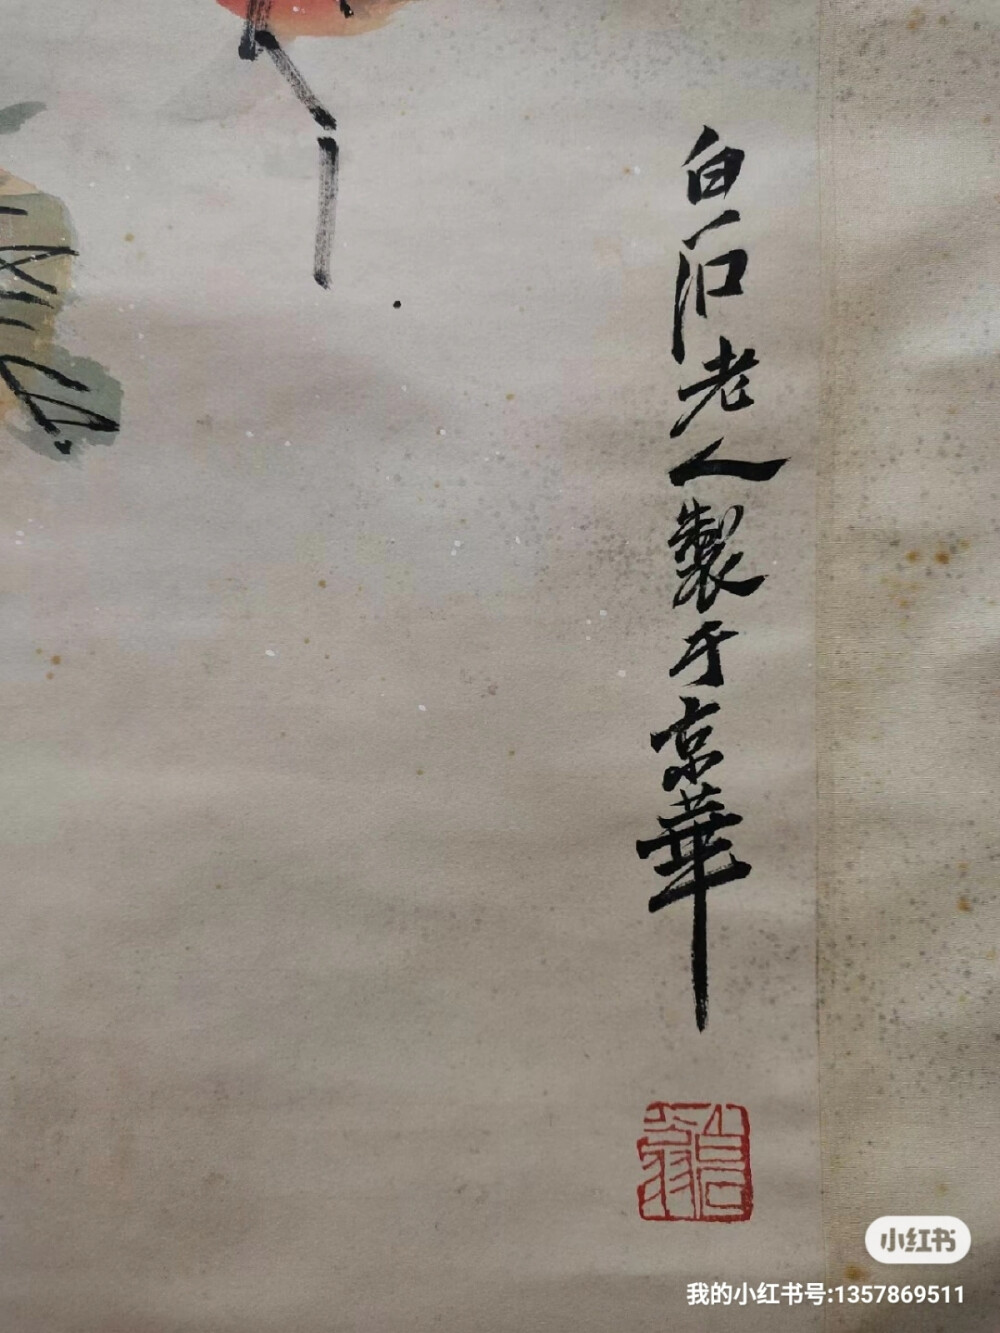 白石老人製于京華
白石翁
小红书
我的小红书号:1357869511